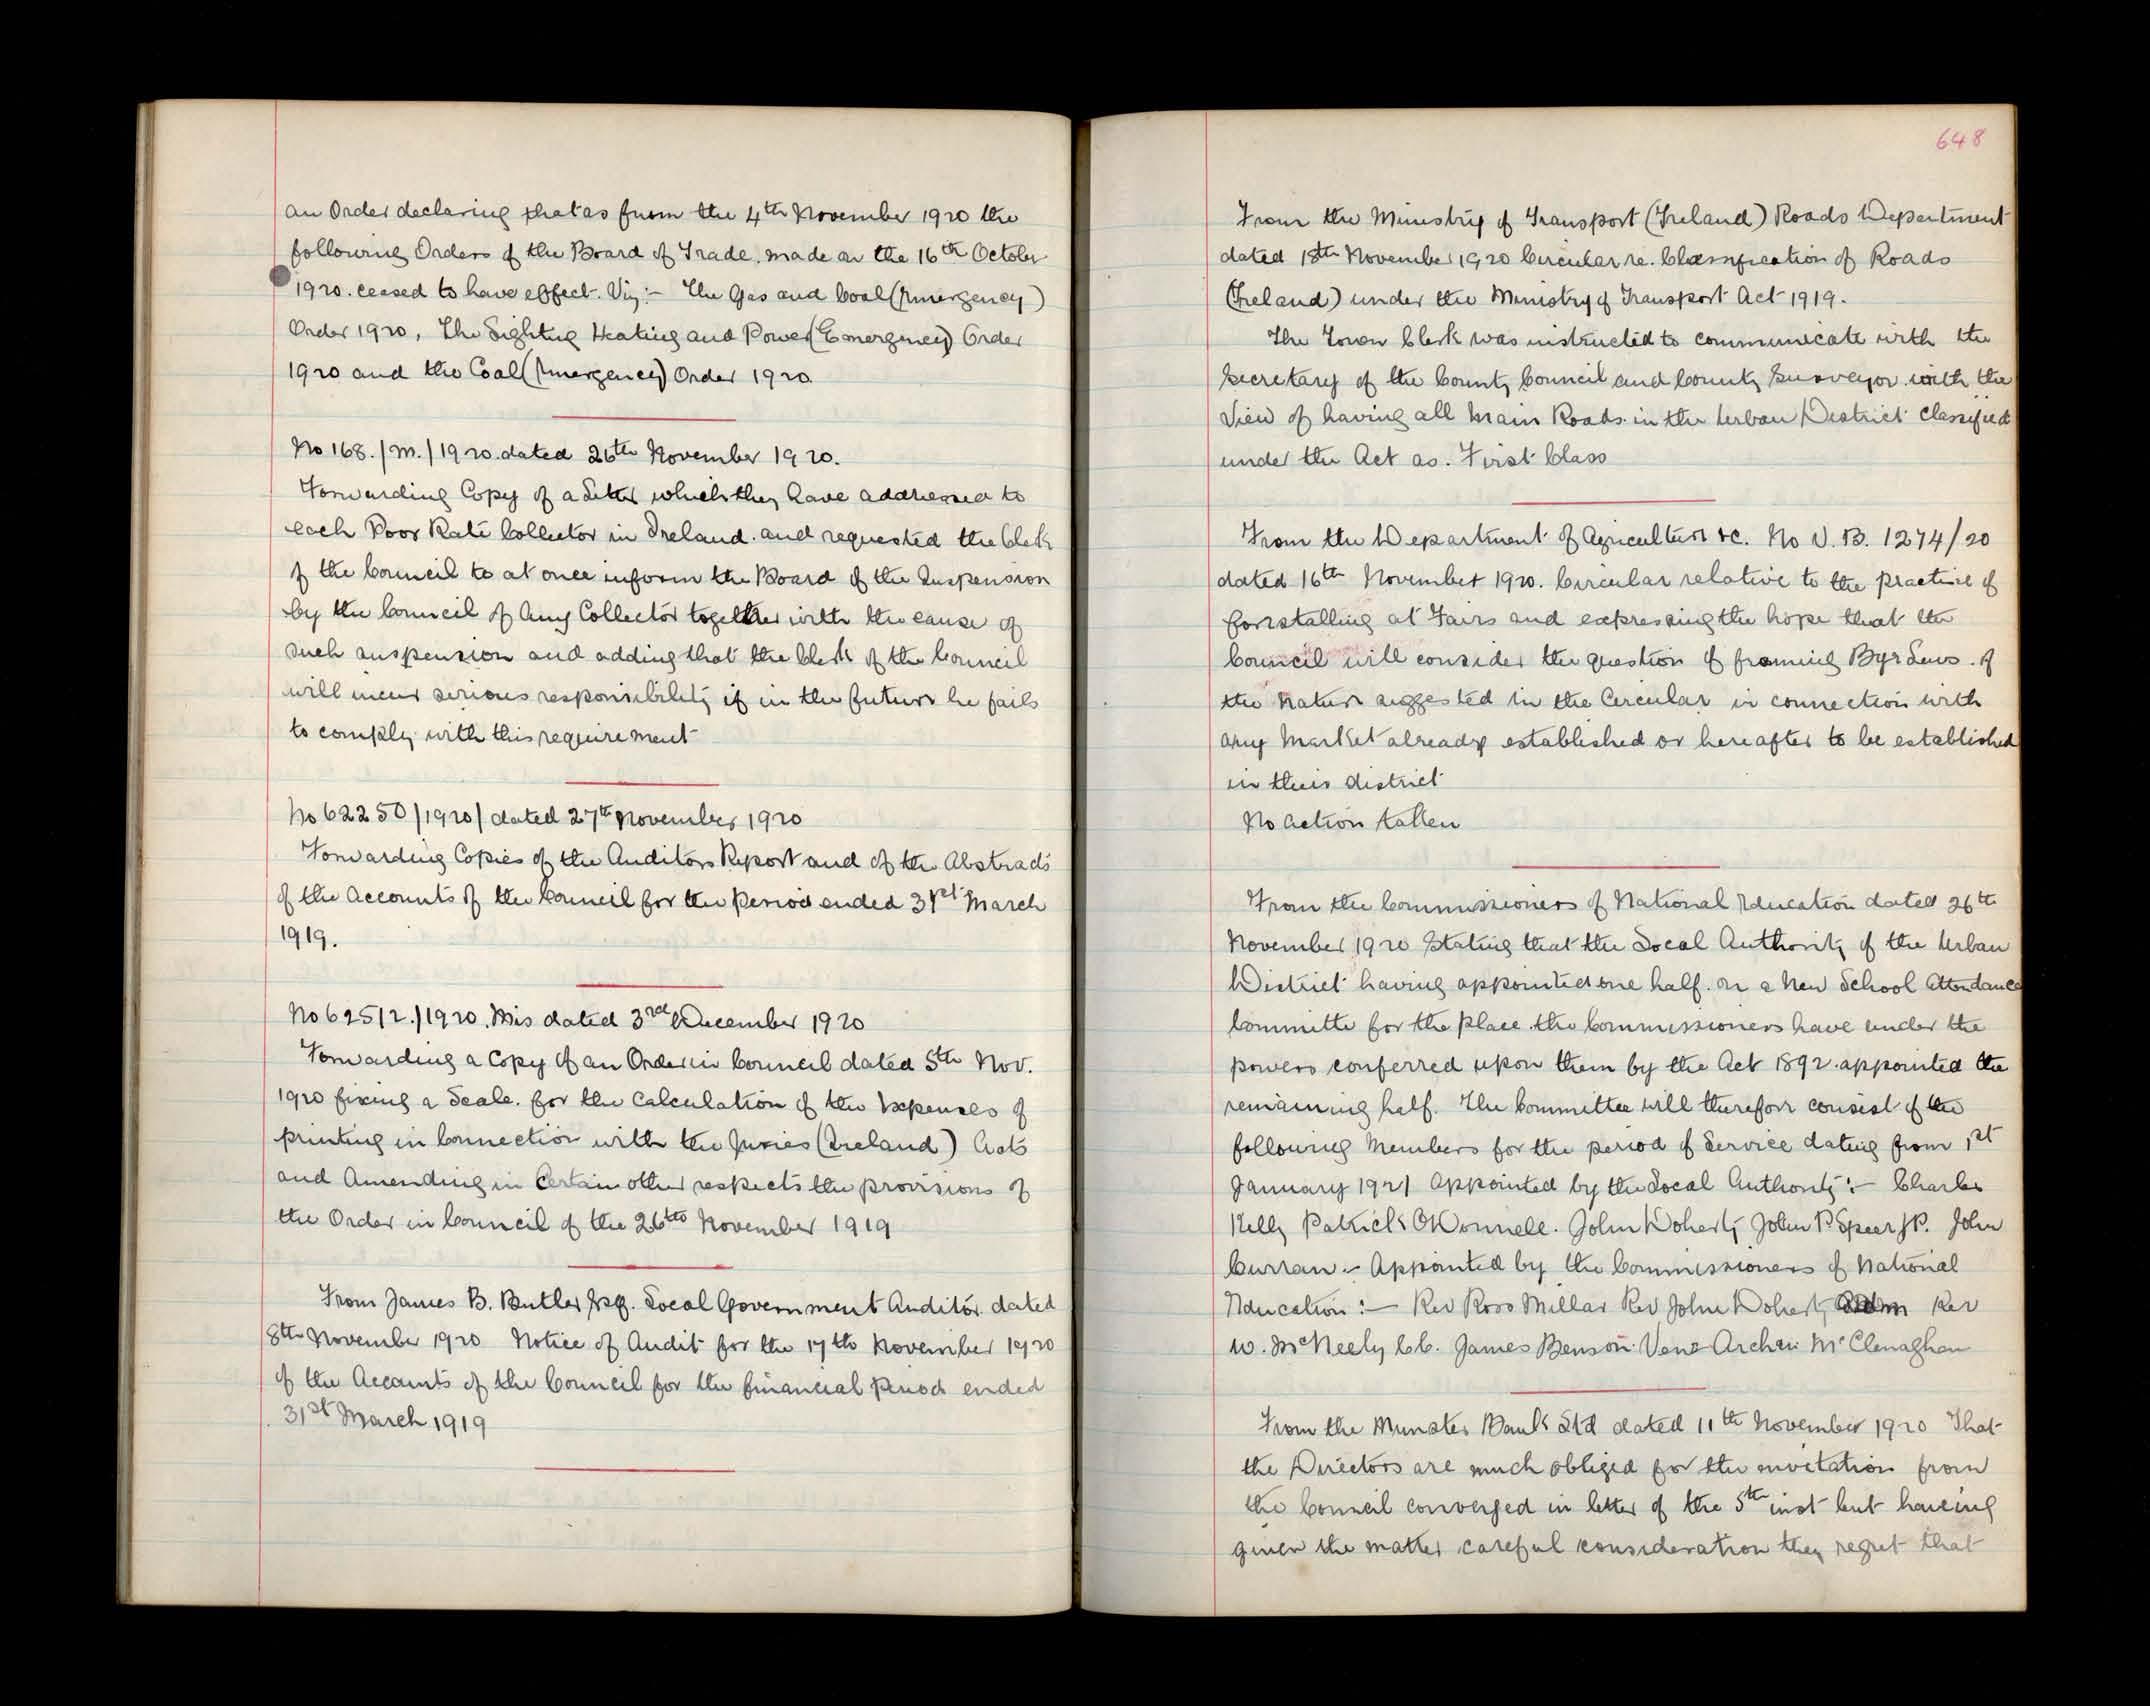 an Order declaring that as from the 4th November 1920 the
following Orders of the Board of Trade. made on the 16th October
1920. ceased to have effect. Viz:- The Gas and Coal (Emergency)
Order 1920, The Lighting Heating and Power (Emergency) Order
1920 and the Coal (Emergency) Order 1920
No 168./M./1920. dated 26th November 1920.
Forwarding Copy of a Letter which they have addressed to
each Poor Rate Collector in Ireland. and requested the Clerk
of the Council to at once inform the Board of the Suspension
by the Council of Any Collector together with the cause of
such suspension and adding that the Clerk of the Council
will incur serious responsibility if in the future he fails
to comply with this requirement
No 62250/1920/ dated 27th November 1920
Forwarding Copies of the Auditors Report and of the Abstracts
of the Accounts of the Council for the period ended 31st March
1919.
No 62512./1920. Mis dated 3rd December 1920
Forwarding a Copy of an Order in Council dated 5th Nov.
1920 fixing a Scale. for the Calculation of the Expenses of
printing in Connection with the Juries (Ireland) Acts
and Amending in Certain other respects the provisions of
the Order in Council of the 26th November 1919
From James B. Butler Esq. Local Government Auditor dated
8th November 1920 Notice of Audit for the 17th November 1920
of the Accounts of the Council for the financial Period ended
31st March 1919
648
From the Ministry of Transport (Ireland) Roads Department
dated 18th November 1920 Circular re. Classification of Roads
(Ireland) under the Ministry of Transport Act 1919.
The Town Clerk was instructed to communicate with the
Secretary of the County Council and County Surveyor with the
View of having all Main Roads in the Urban District Classified
under the Act as. First Class
From the Department of Agriculture &c. No V. B. 1274/20
dated 16th November 1920. Circular relative to the practice of
forestalling at Fairs and expressing the hope that the
Council will consider the question of framing Bye Laws. of
the Nature suggested in the Circular in connection with
any Market already established or hereafter to be established
in their district
No action taken
From the Commissioners of National Education dated 26th
November 1920 Stating that the Local Authority of the Urban
District having appointed one half. on a New School Attendance
Committe for the Place. the Commissioners have under the
powers conferred upon them by the Act 1892. appointed the
remaining half. The Committee will therefore consist of the
following Members for the period of Service dating from 1st
January 1921 Appointed by the Local Authority:- Charles
Kelly Patrick O'Donnell. John Doherty John P. Speer J.P. John
Curran.- Appointed by the Commissioners of National
Education:- Rev Ross Millar Rev John Doherty Adm Rev
W. McNeely C.C. James Benson Vene Archn. McClenaghan
From the Munster Bank Ltd dated 11th November 1920 That
the Directors are much obliged for the invitation from
the Council conveyed in letter of the 5th inst but having
given the matter careful consideration they regret that